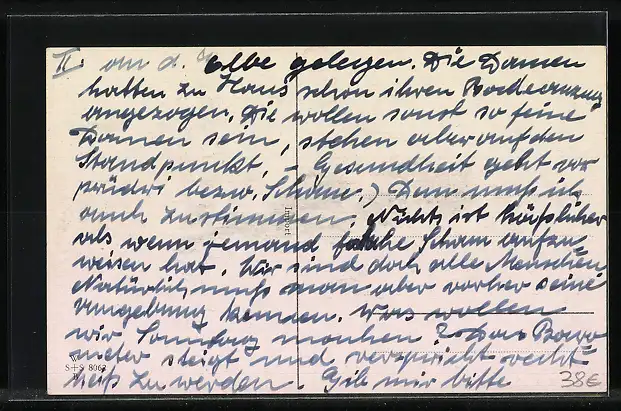 II. an d. Elbe gelegen. Die Damen
hatten zu Haus schon ihren Badeanzug
angezogen. Die wollen sonst so feine
Damen sein, stehen aber auf den
Standpunkt, - Gesundheit geht vor
prüderi bezw. Scham.) Dem muß ich
auch zustimmen. Nichts ist häßlicher
als wenn jemand falsche Scham aufzu
weisen hat. Wir sind doch alle Menschen.
Natürlich muß man aber vorher seine
Umgebung kennen. Was wollen
wir Sonntag machen? Das Baro
meter steigt und verspricht recht
heiß zu werden. Gib mir bitte
Import
W
S+S 8062
B
38€